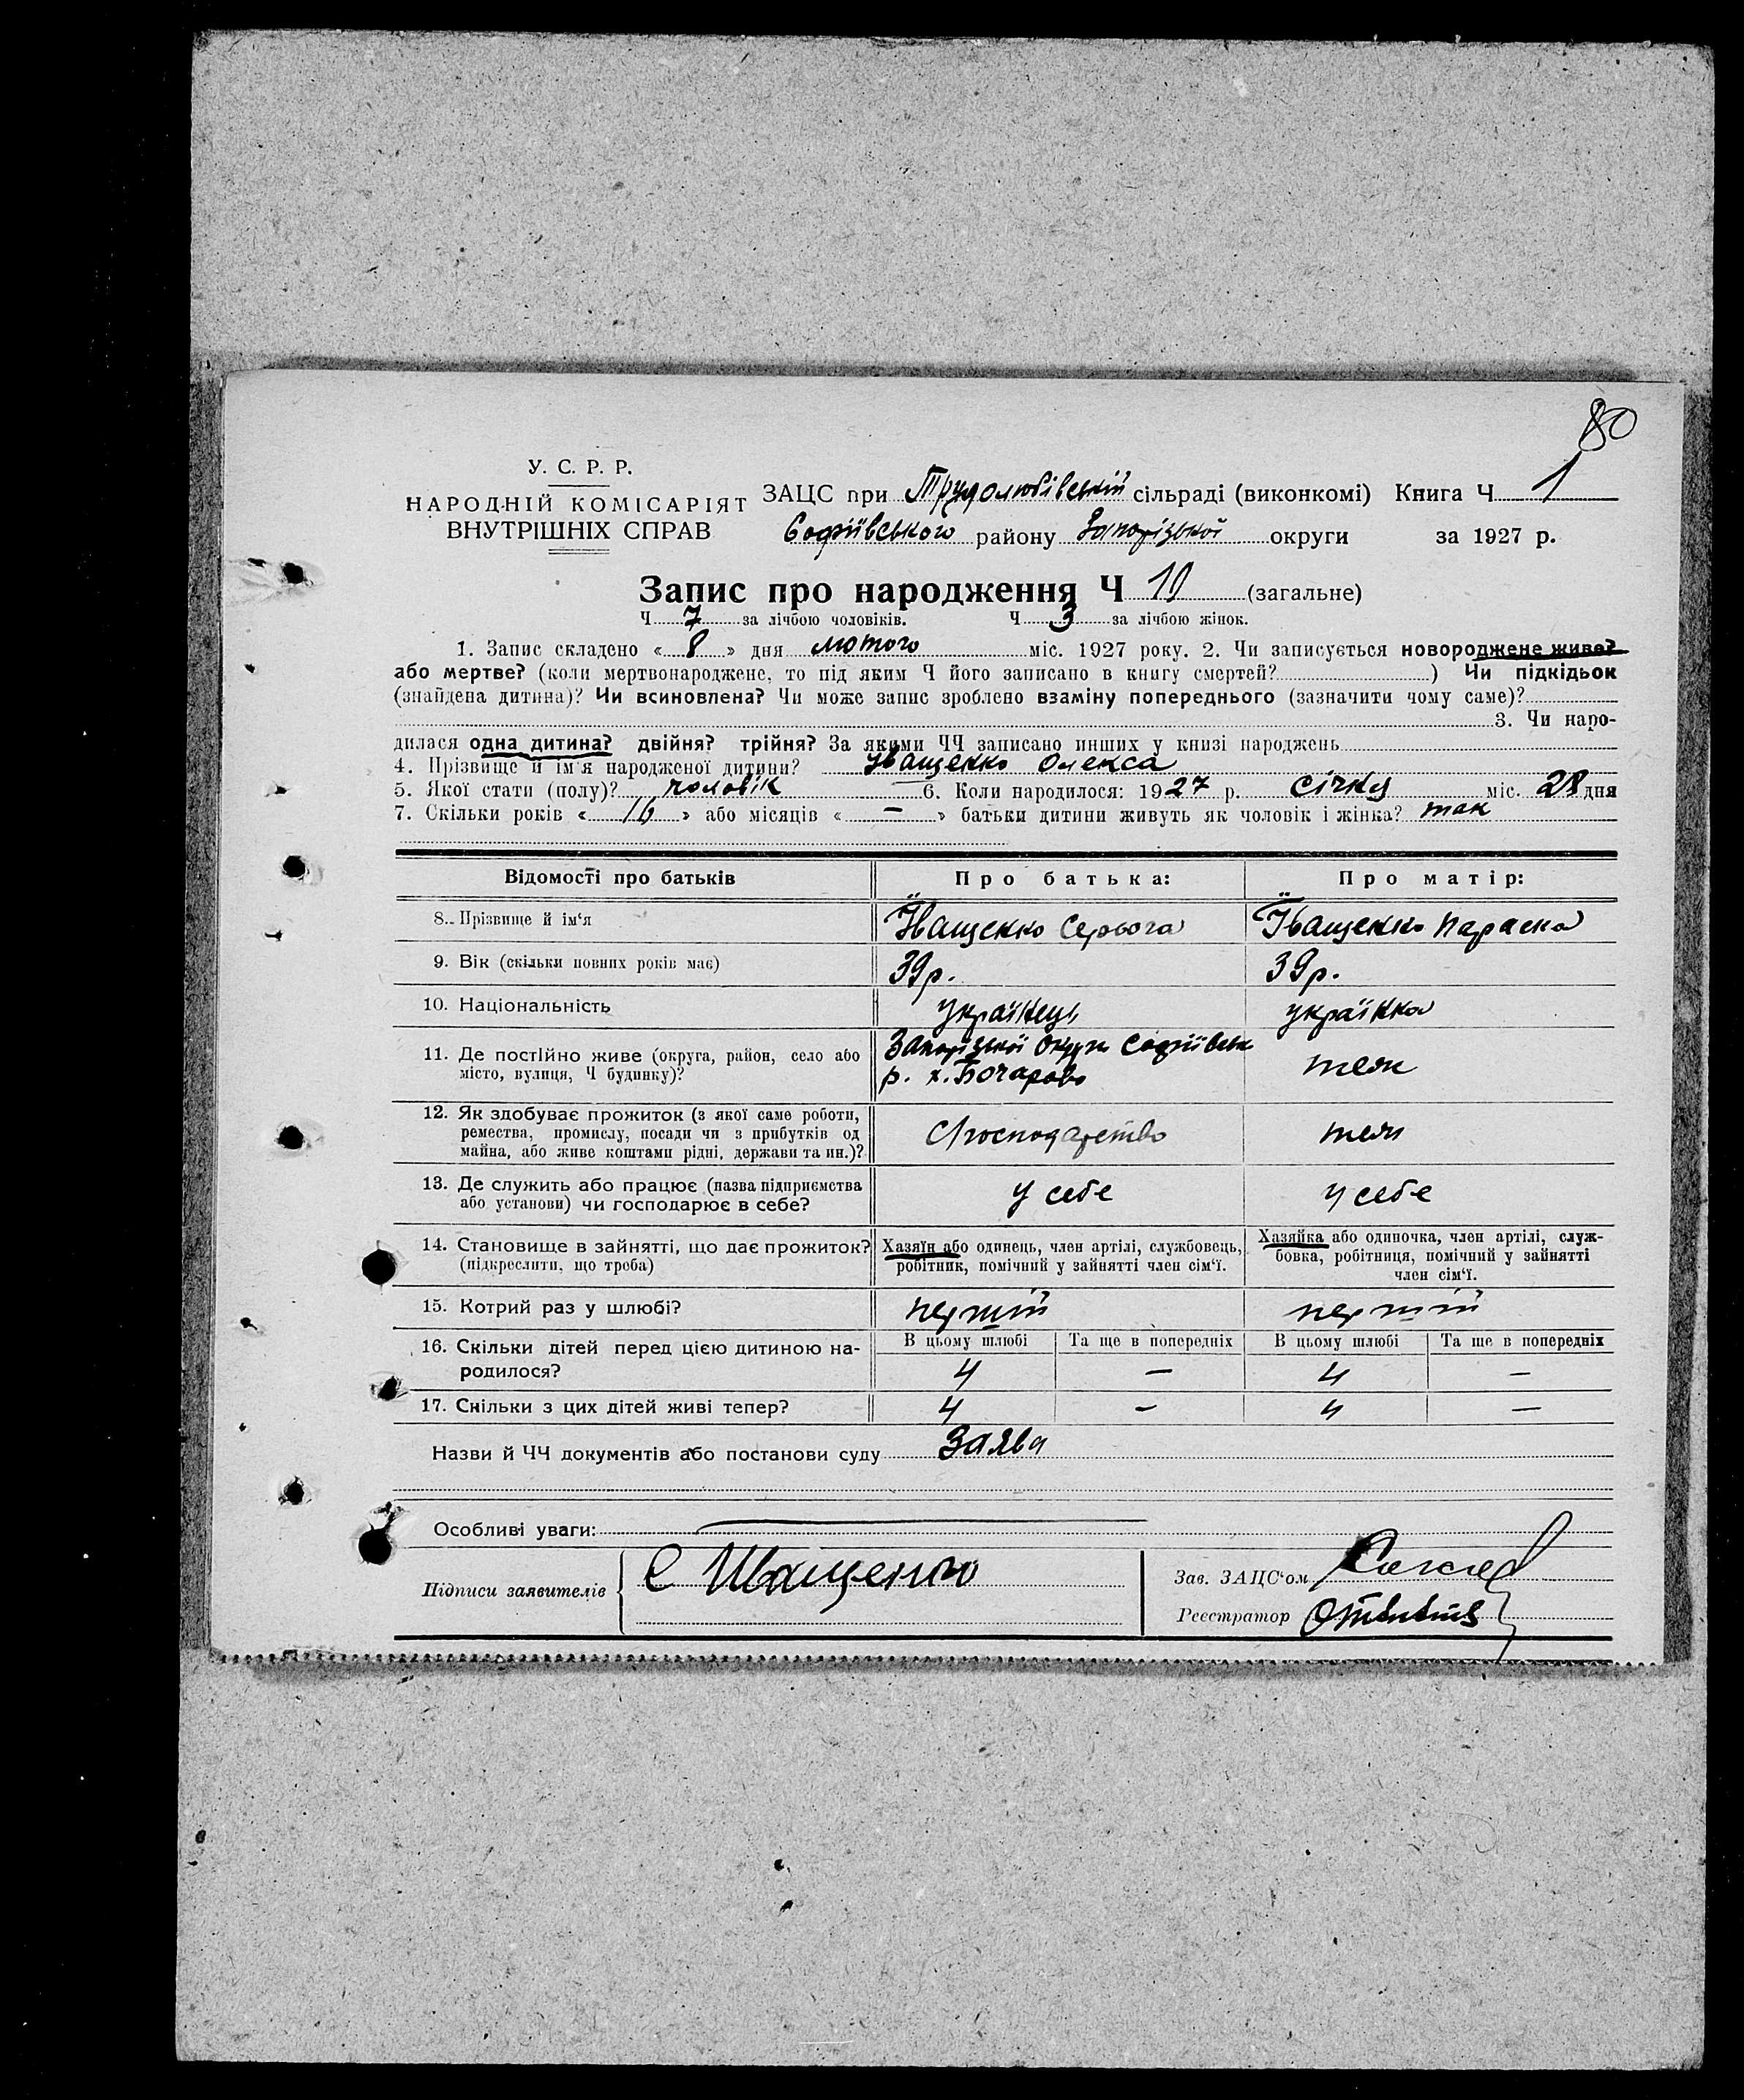 80
У. С. Р. Р.
НАРОДНІЙ КОМІСАРІЯТ
ВНУТРІШНІХ СПРАВ
ЗАЦС при Трудолюбівській сільраді (виконкомі) Книга Ч 1
Софіївського району Запорізької округи за 1927 р.
Запис про народження Ч 10 (загальне)
Ч 7 за лічбою чоловіків. Ч 3 за лічбою жінок.
1. Запис складено « 8 » дня лютого міс. 1927 року. 2. Чи записується новороджене живе?
або мертве? (коли мертвонароджене, то під яким Ч його записано в книгу смертей? ) Чи підкідьок
(знайдена дитина)? Чи всиновлена? Чи може запис зроблено взаміну попереднього (зазначити чому саме)?
3. Чи наро-
дилася одна дитина? двійня? трійня? За якими ЧЧ записано инших у книзі народжень
4. Прізвище й ім'я народженої дитини? Іващенко Олекса
5. Якої стати (полу)? чоловік 6. Коли народилося: 1927 р. січня міс. 28 дня
7. Скільки років « 16 » або місяців « — » батьки дитини живуть як чоловік і жінка? так
Відомості про батьків Про батька: Про матір:
8. Прізвище й ім'я Їващенко Серьога Їващенко Параска
9. Вік (скільки повних років має) 39р. 39р.
10. Національність українець українка
11. Де постійно живе (округа, район, село або Запорізької Округи Софіївськ
місто, вулиця, Ч будинку)? р. х. Бочарово теж
12. Як здобуває прожиток (з якої саме роботи,
ремества, промислу, посади чи з прибутків од С/господарство теж
майна, або живе коштами рідні, держави та ин.)?
13. Де служить або працює (назва підприємства у себе у себе
або установи) чи господарює в себе?
14. Становище в зайнятті, що дає прожиток? Хазяїн або одинець, член артілі, службовець, Хазяйка або одиночка, член артілі, служ-
(підкреслити, що треба) робітник, помічний у зайнятті член сім'ї. бовка, робітниця, помічний у зайнятті
член сім'ї.
15. Котрий раз у шлюбі? перший перший
16. Скільки дітей перед цією дитиною на- В цьому шлюбі Та ще в попередніх В цьому шлюбі Та ще в попередніх
родилося? 4 — 4 —
17. Скільки з цих дітей живі тепер? 4 — 4 —
Назви й ЧЧ документів або постанови суду Заява
Особливі уваги:
Підписи заявителів С Иващенко
Зав. ЗАЦС'ом
Реєстратор